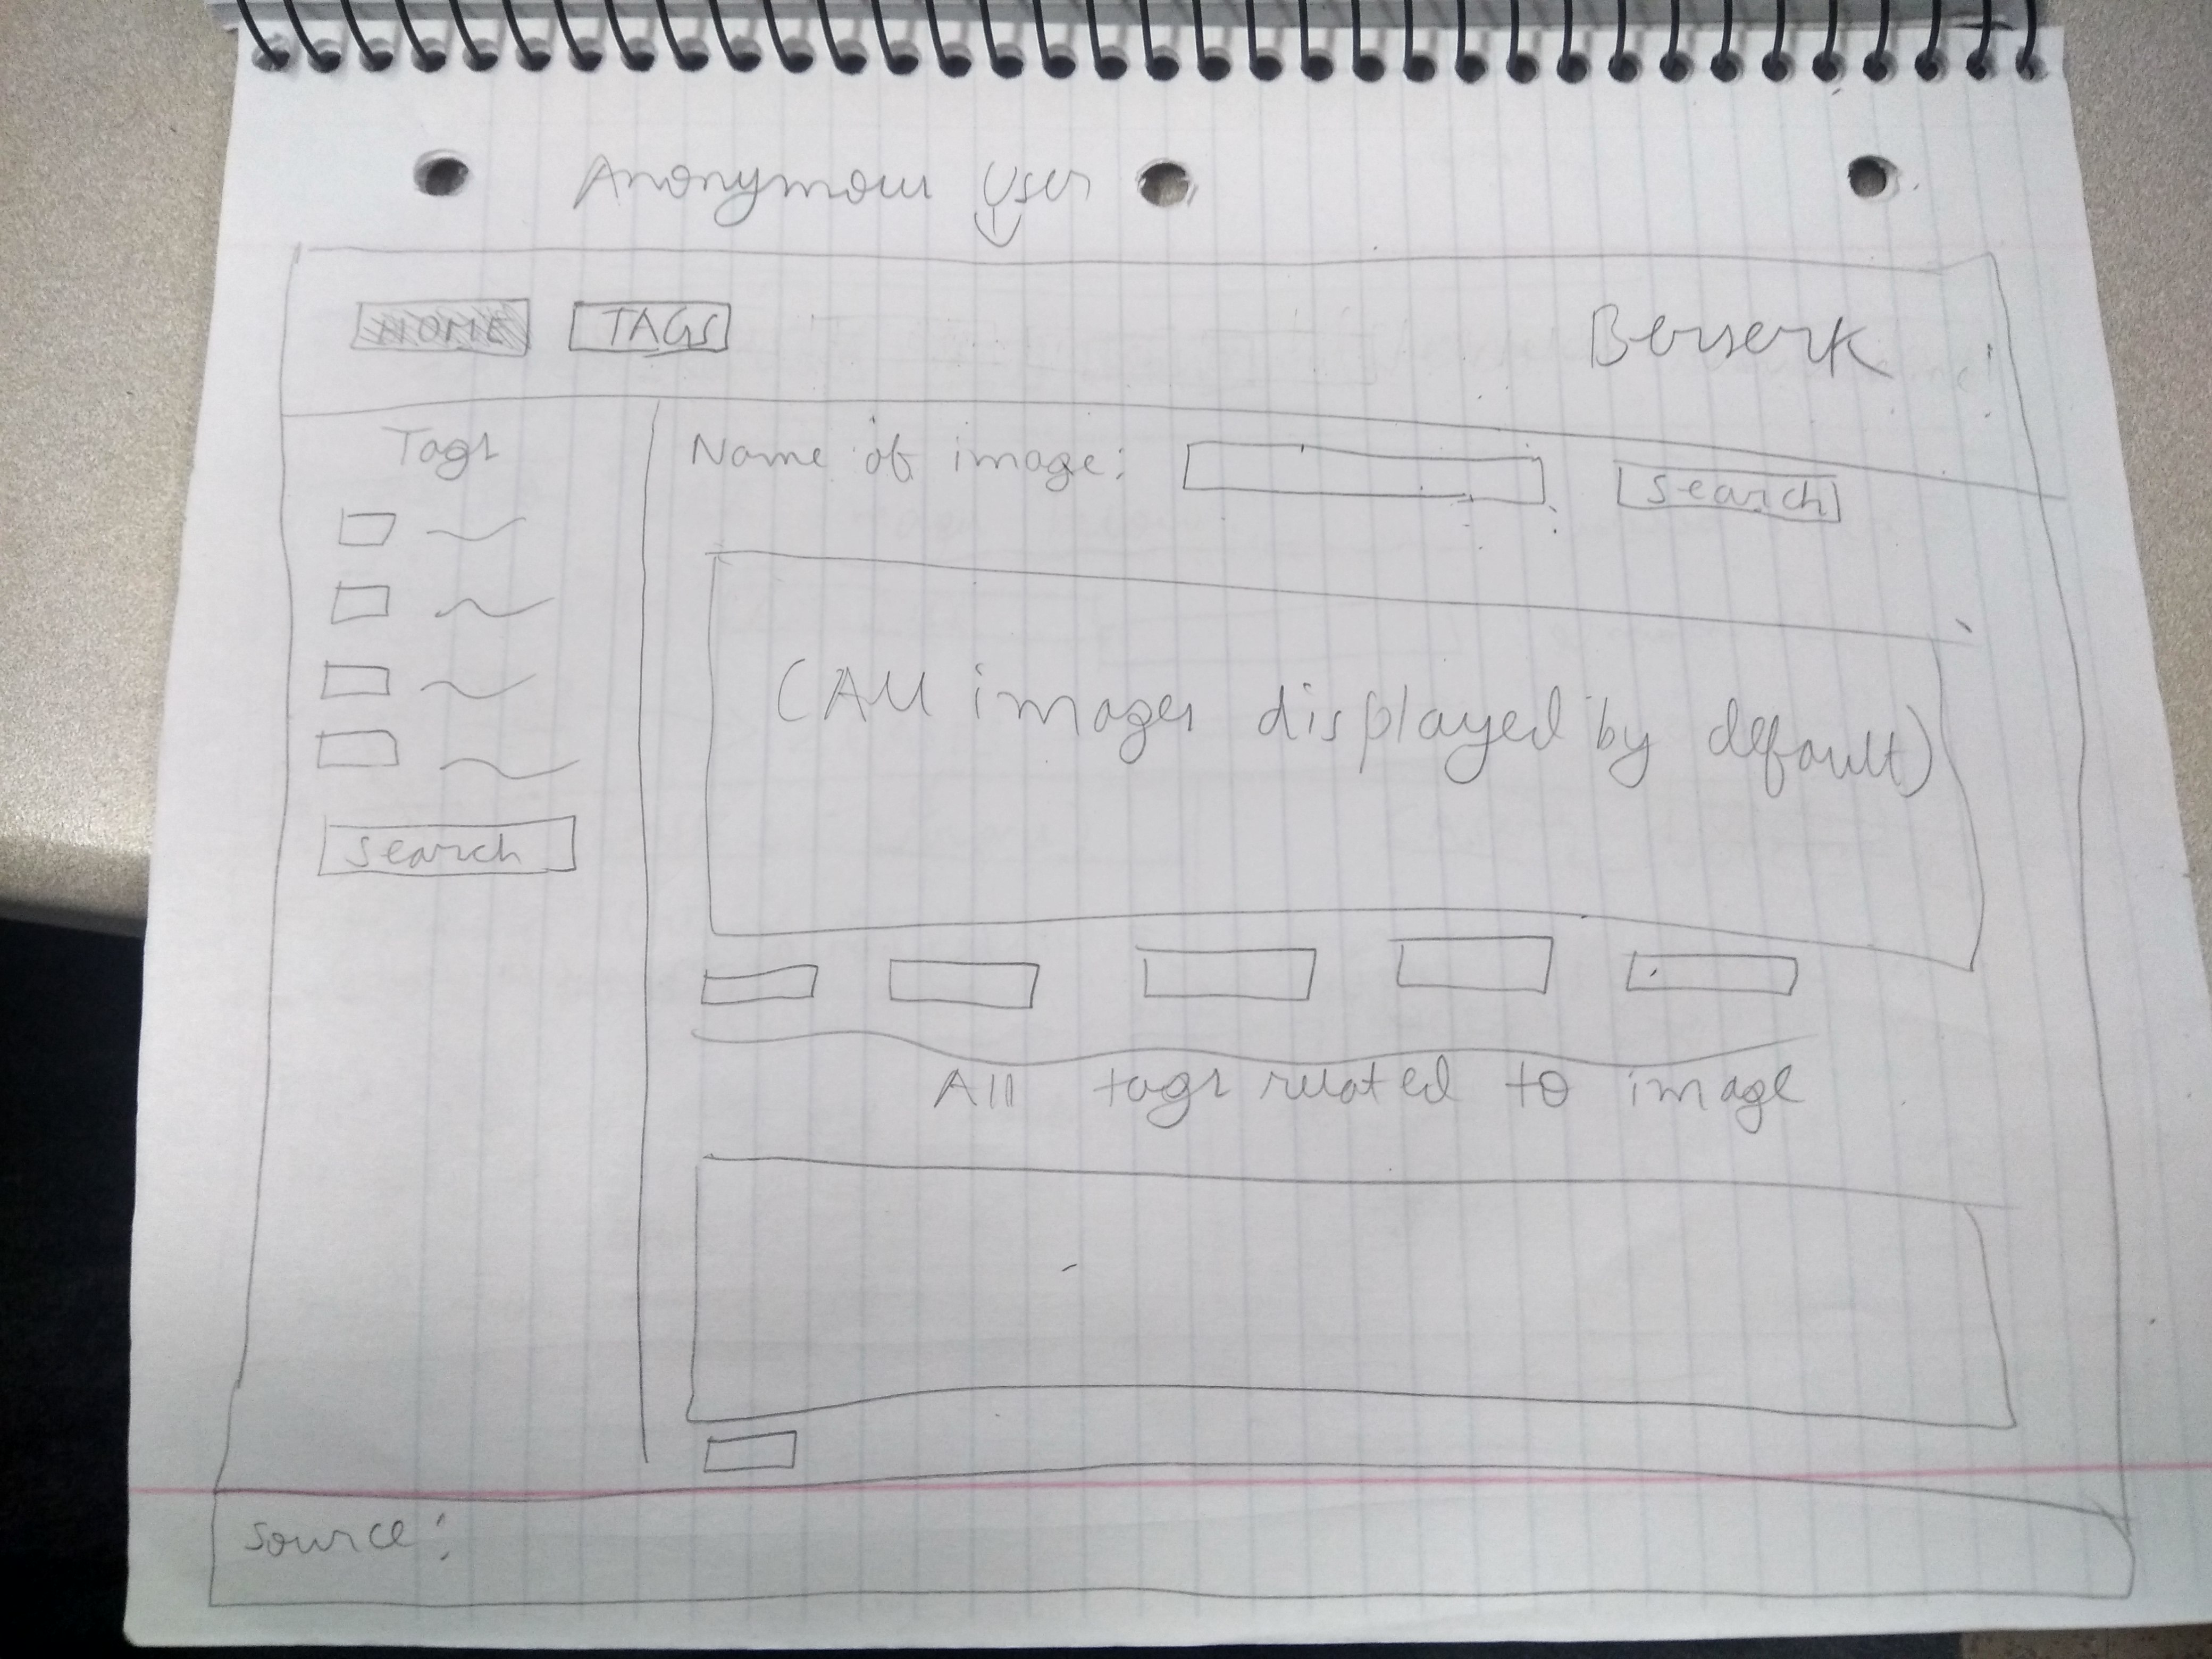 Anonymous User
HOME TAGS Berserk
Tags
Name of image: search
search
(All images displayed by default)
All tags related to image
source: